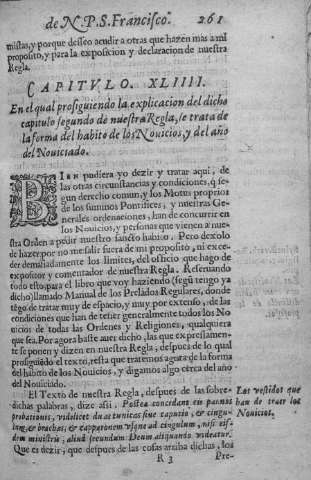 de N.P.S. Francisco. 261
mistas, y porque desseo acudir a otras que hazen mas a mi
proposito, y para la exposicion y declaracion de nuestra
Regla.
CAPITVLO. XLIIII.
En el qual prosiguiendo la explicacion del dicho
capitulo segundo de nuestra Regla, se trata de
la forma del habito de los Novicios, y del año
del Noviciado.
BIEN pudiera yo dezir y tratar aqui, de
las otras circunstancias y condiciones, q̃ se-
gun derecho comun, y los Motus proprios
de los summos Pontifices, y nuestras Ge-
nerales ordenaciones, han de concurrir en
los Novicios, y personas que vienen a nue-
stra Orden a pedir nuestro sancto habito. Pero dexolo
de hazer por no me salir fuera de mi proposito, ni exce-
der demasiadamente los limites, del officio que hago de
expositor y comentador de nuestra Regla. Reservando
todo esto, para el libro que voy haziendo (segũ tengo ya
dicho) llamado Manual de los Prelados Regulares, donde
tẽgo de tratar muy de espacio, y muy por extenso, de las
condiciones que han de tener generalmente todos los No
vicios de todas las Ordenes y Religiones, qualquiera
que sea. Por agora baste aver dicho, las que expressamen-
te se ponen y dizen en nuestra Regla, despues de lo qual
prosiguiẽdo el texto, resta que tratemos agora de la forma
del habito de los Novicios, y digamos algo cerca del año
del Noviciado.
El Texto de nuestra Regla, despues de las sobre-
dichas palabras, dize assi. Postea concedant eis pannos
probationis, videlicet duas tunicas sine caputio, & cingu-
lum, & brachas, & capparonem vsque ad cingulum, nisi eis-
dem ministris, aliud secundum Deum aliquando videatur.
Que es dezir, que despues de las cosas arriba dichas, los
Los vestidos que
han de traer los
Novicios.
R 3 Pre-